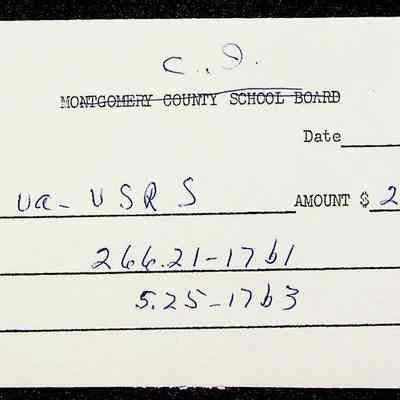 C.I.
MONTGOMERY COUNTY SCHOOL BOARD
Date
Va- VSRS AMOUNT $ 2
266.21-17b1
5.25-17b3